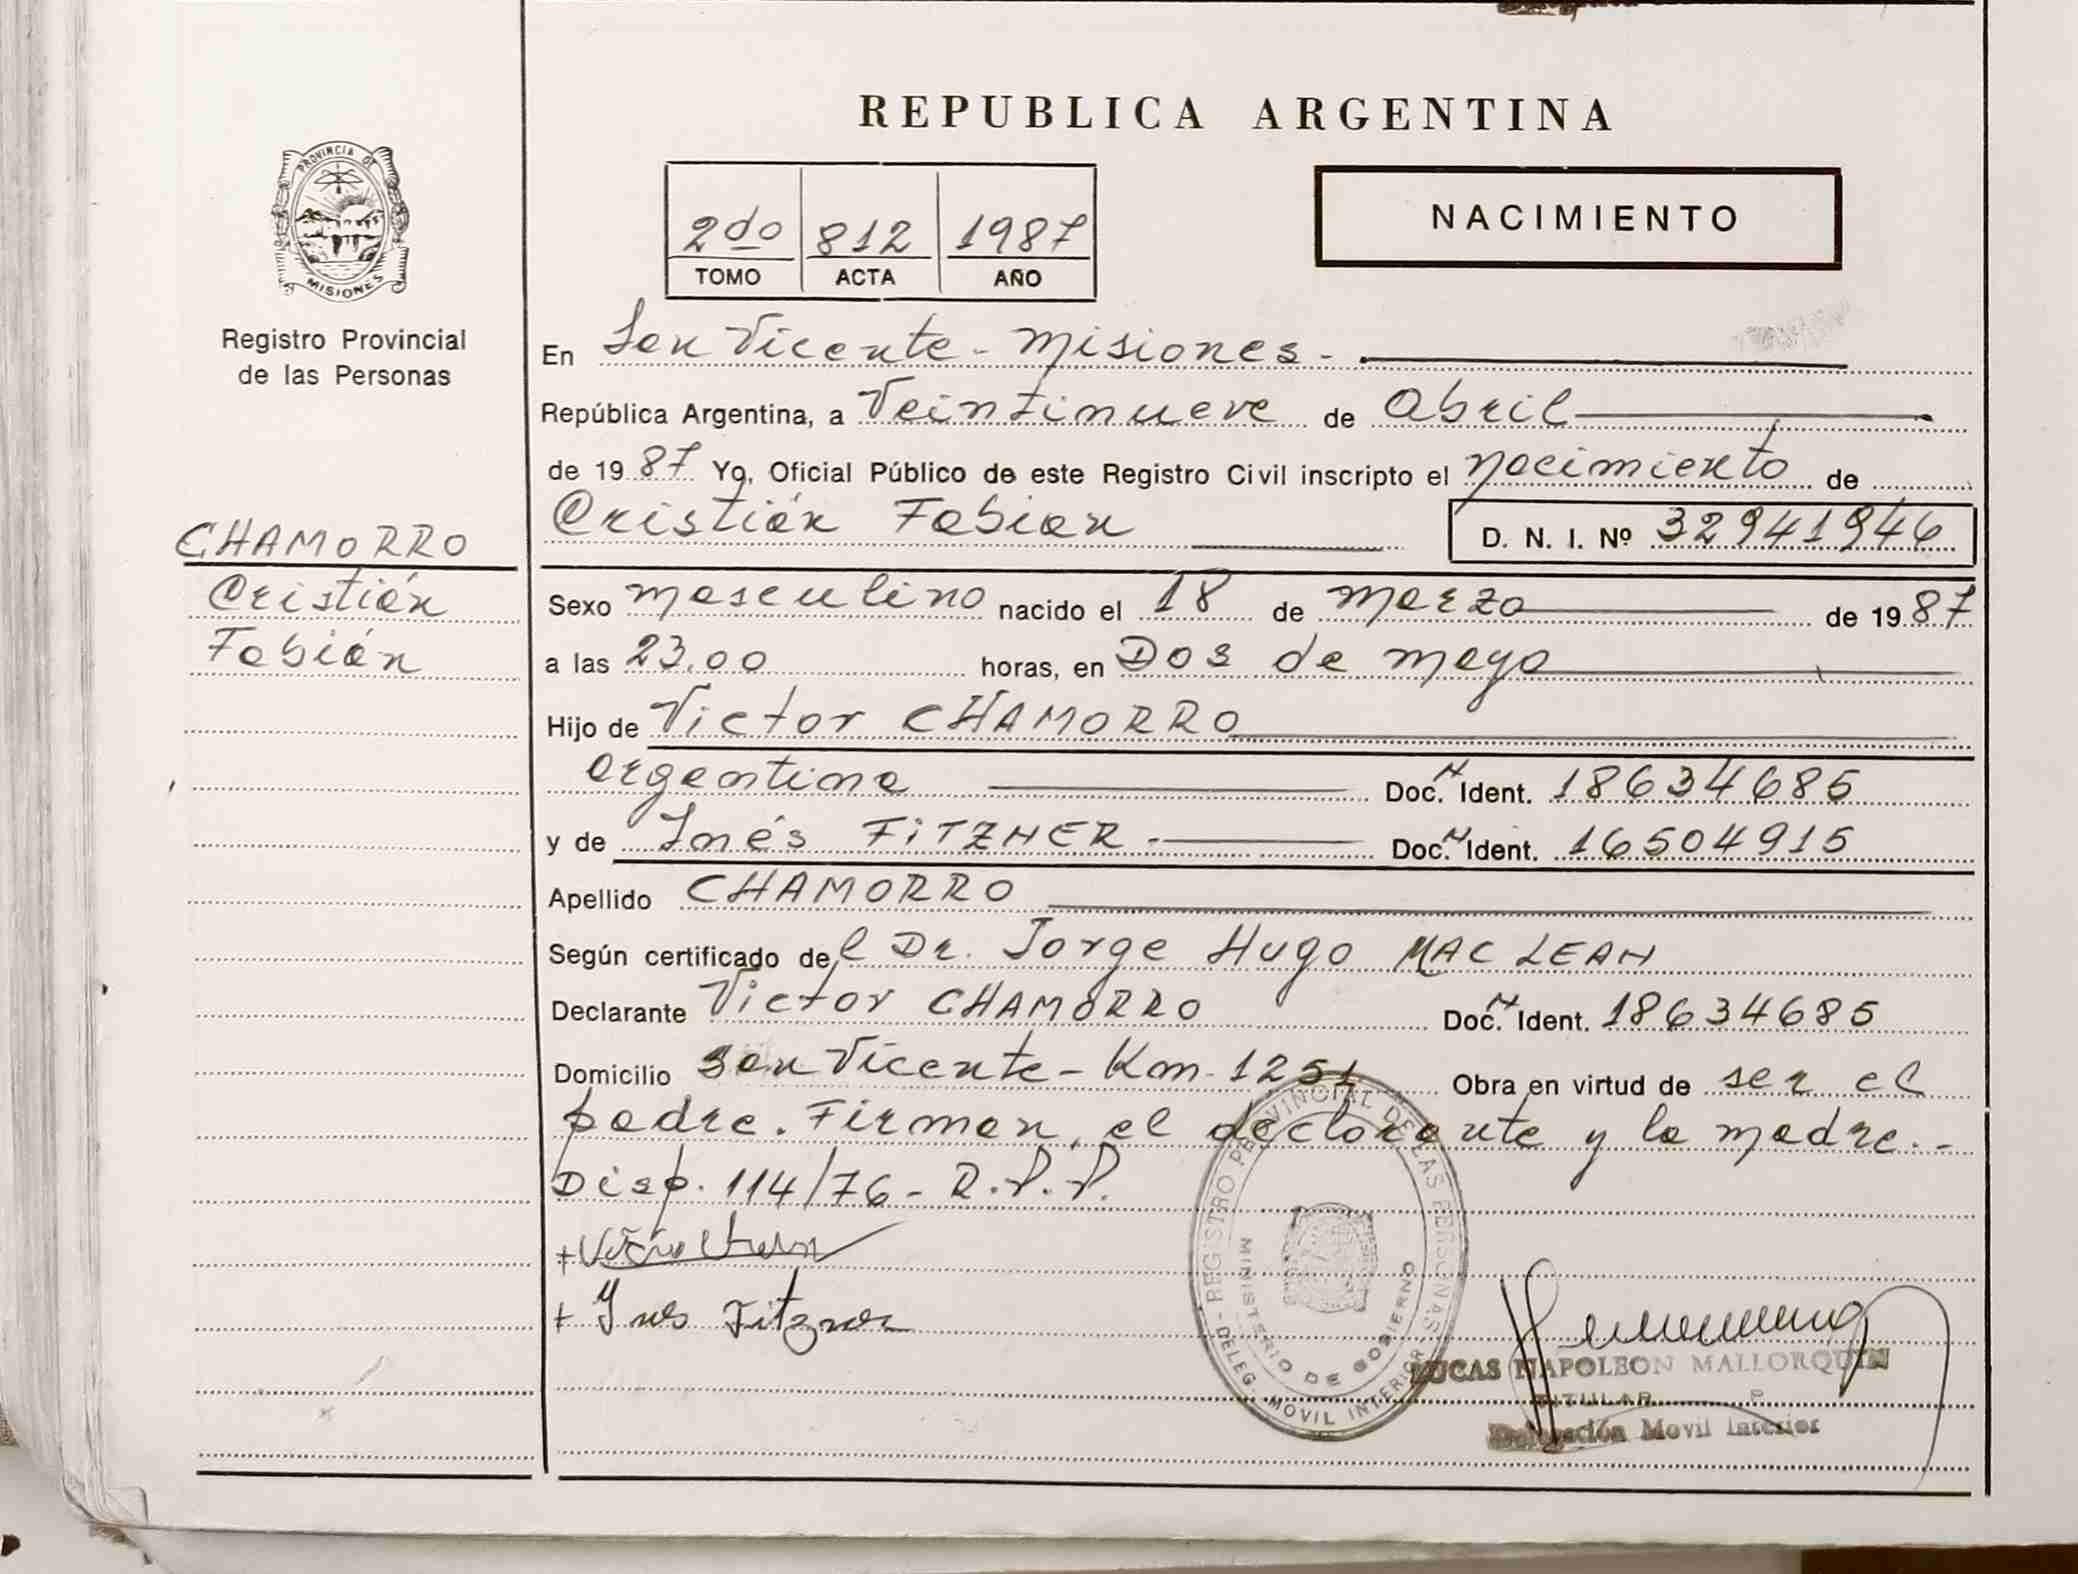 REPUBLICA ARGENTINA
PROVINCIA DE
MISIONES
Registro Provincial
de las Personas
2do 812 1987
TOMO ACTA AÑO
NACIMIENTO
En San Vicente - Misiones -
República Argentina, a Veintinueve de Abril
de 1987 Yo, Oficial Público de este Registro Civil inscripto el nacimiento de
CHAMORRO
Cristián
Fabián
Cristián Fabian D. N. I. Nº 32941946
Sexo masculino nacido el 18 de Marzo de 1987
a las 23.00 horas, en Dos de mayo
Hijo de Victor CHAMORRO
argentina Doc. N Ident. 18634685
y de Inés FiTZNER - Doc. N Ident. 16504915
Apellido CHAMORRO
Según certificado del Dr. Jorge Hugo MAC LEAN
Declarante Victor CHAMORRO Doc. N Ident. 18634685
Domicilio San Vicente - Km - 1251 Obra en virtud de ser el
padre. Firman, el declarante y la madre. -
Disp. 114/76 - R.P.P.
+ Ynes Fitzner
REGISTRO PROVINCIAL DE LAS PERSONAS
MINISTERIO DE GOBIERNO
DELEG. MOVIL INTERIOR
LUCAS NAPOLEON MALLORQUIN
TITULAR
Delegación Movil Interior